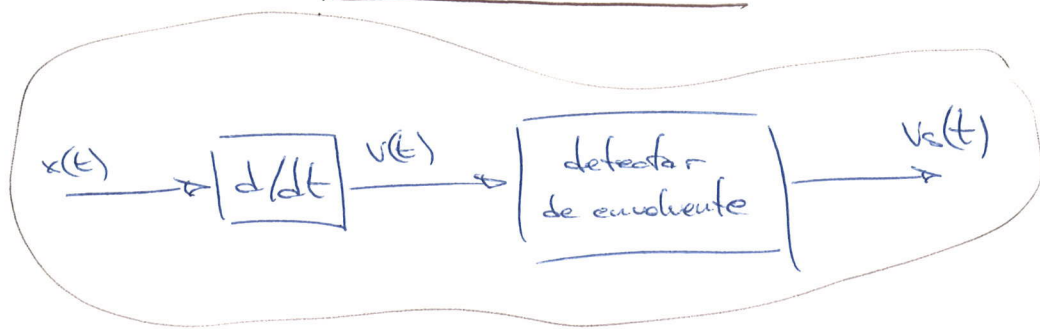 x(t)
d/dt
v(t)
detector
de envolvente
Vs(t)